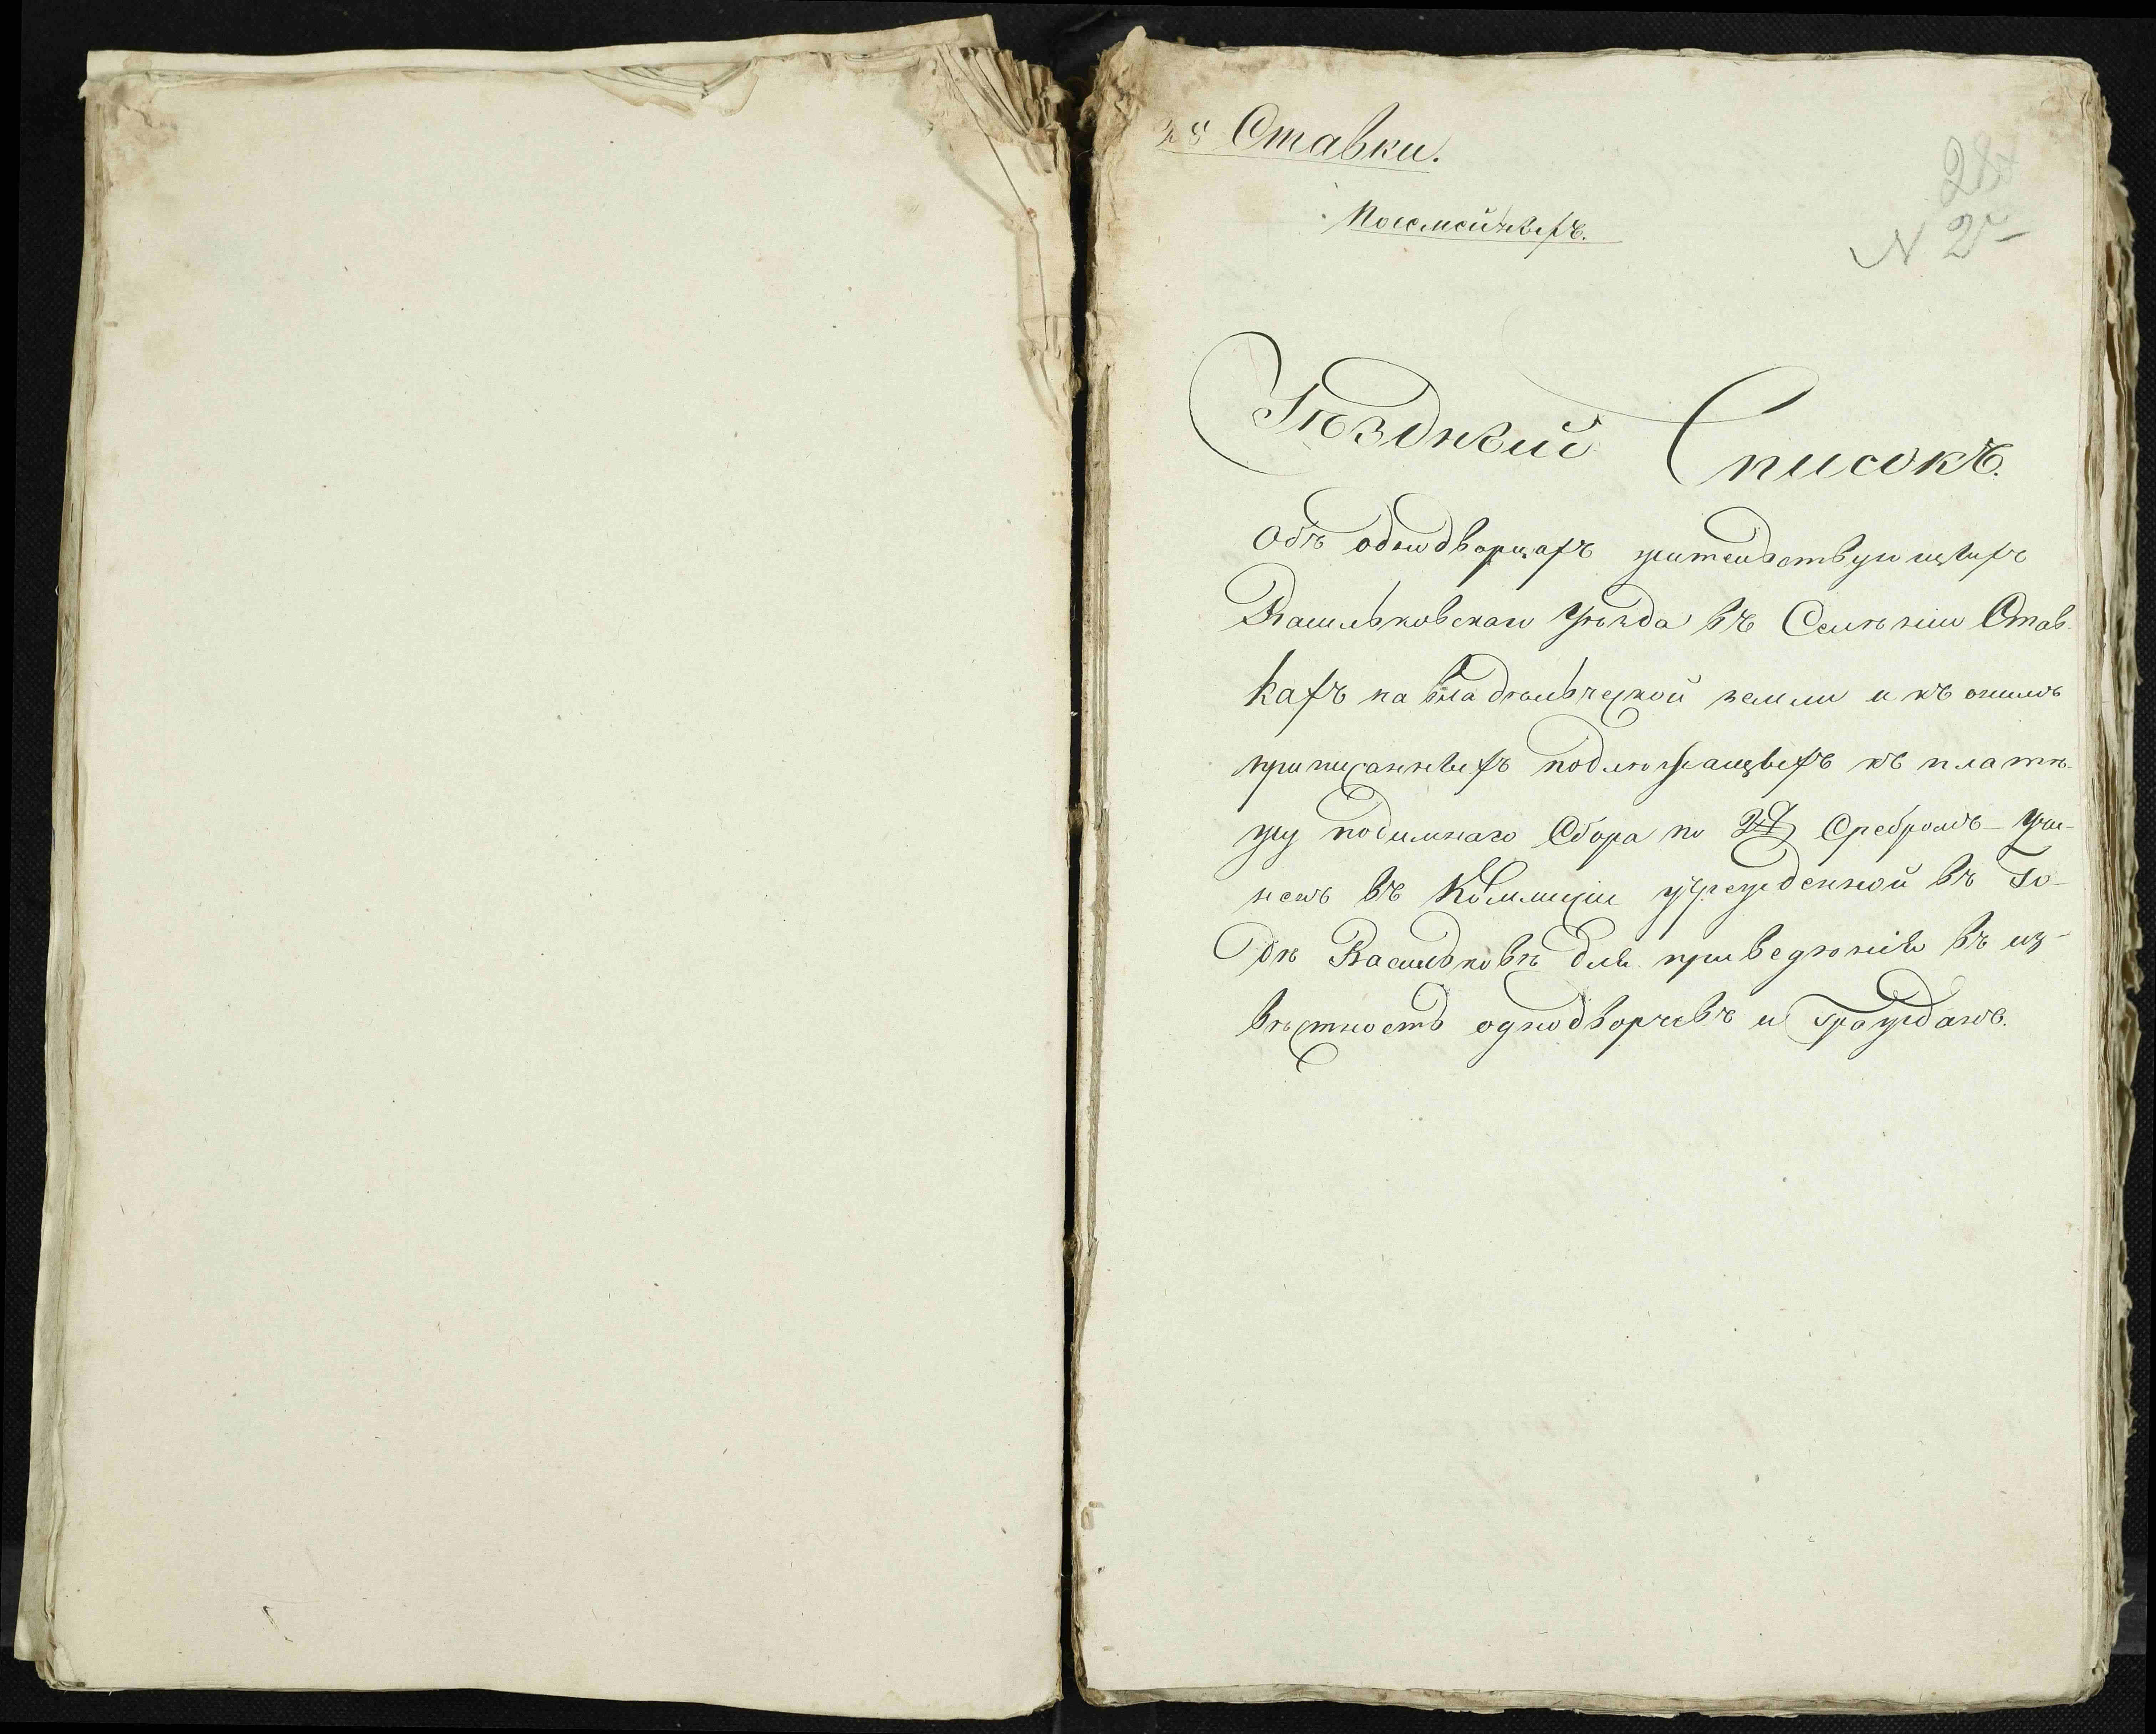 28 Ставки.
Посемейныхъ.
28
N 2
Уѣздный Списокъ.
Объ однодворцахъ жительствующихъ
Васильковскаго Уѣзда въ Селѣніи Став-
кахъ на владѣльческой земли и къ онымъ
приписанныхъ подлѣжащихъ къ платѣ-
жу подимнаго Сбора по Сребромъ – Учи-
ненъ въ Коммисіи учрежденной въ Го-
дѣ Васильковѣ для приведѣнія въ из-
вѣстность однодворчевъ и Гражданъ.